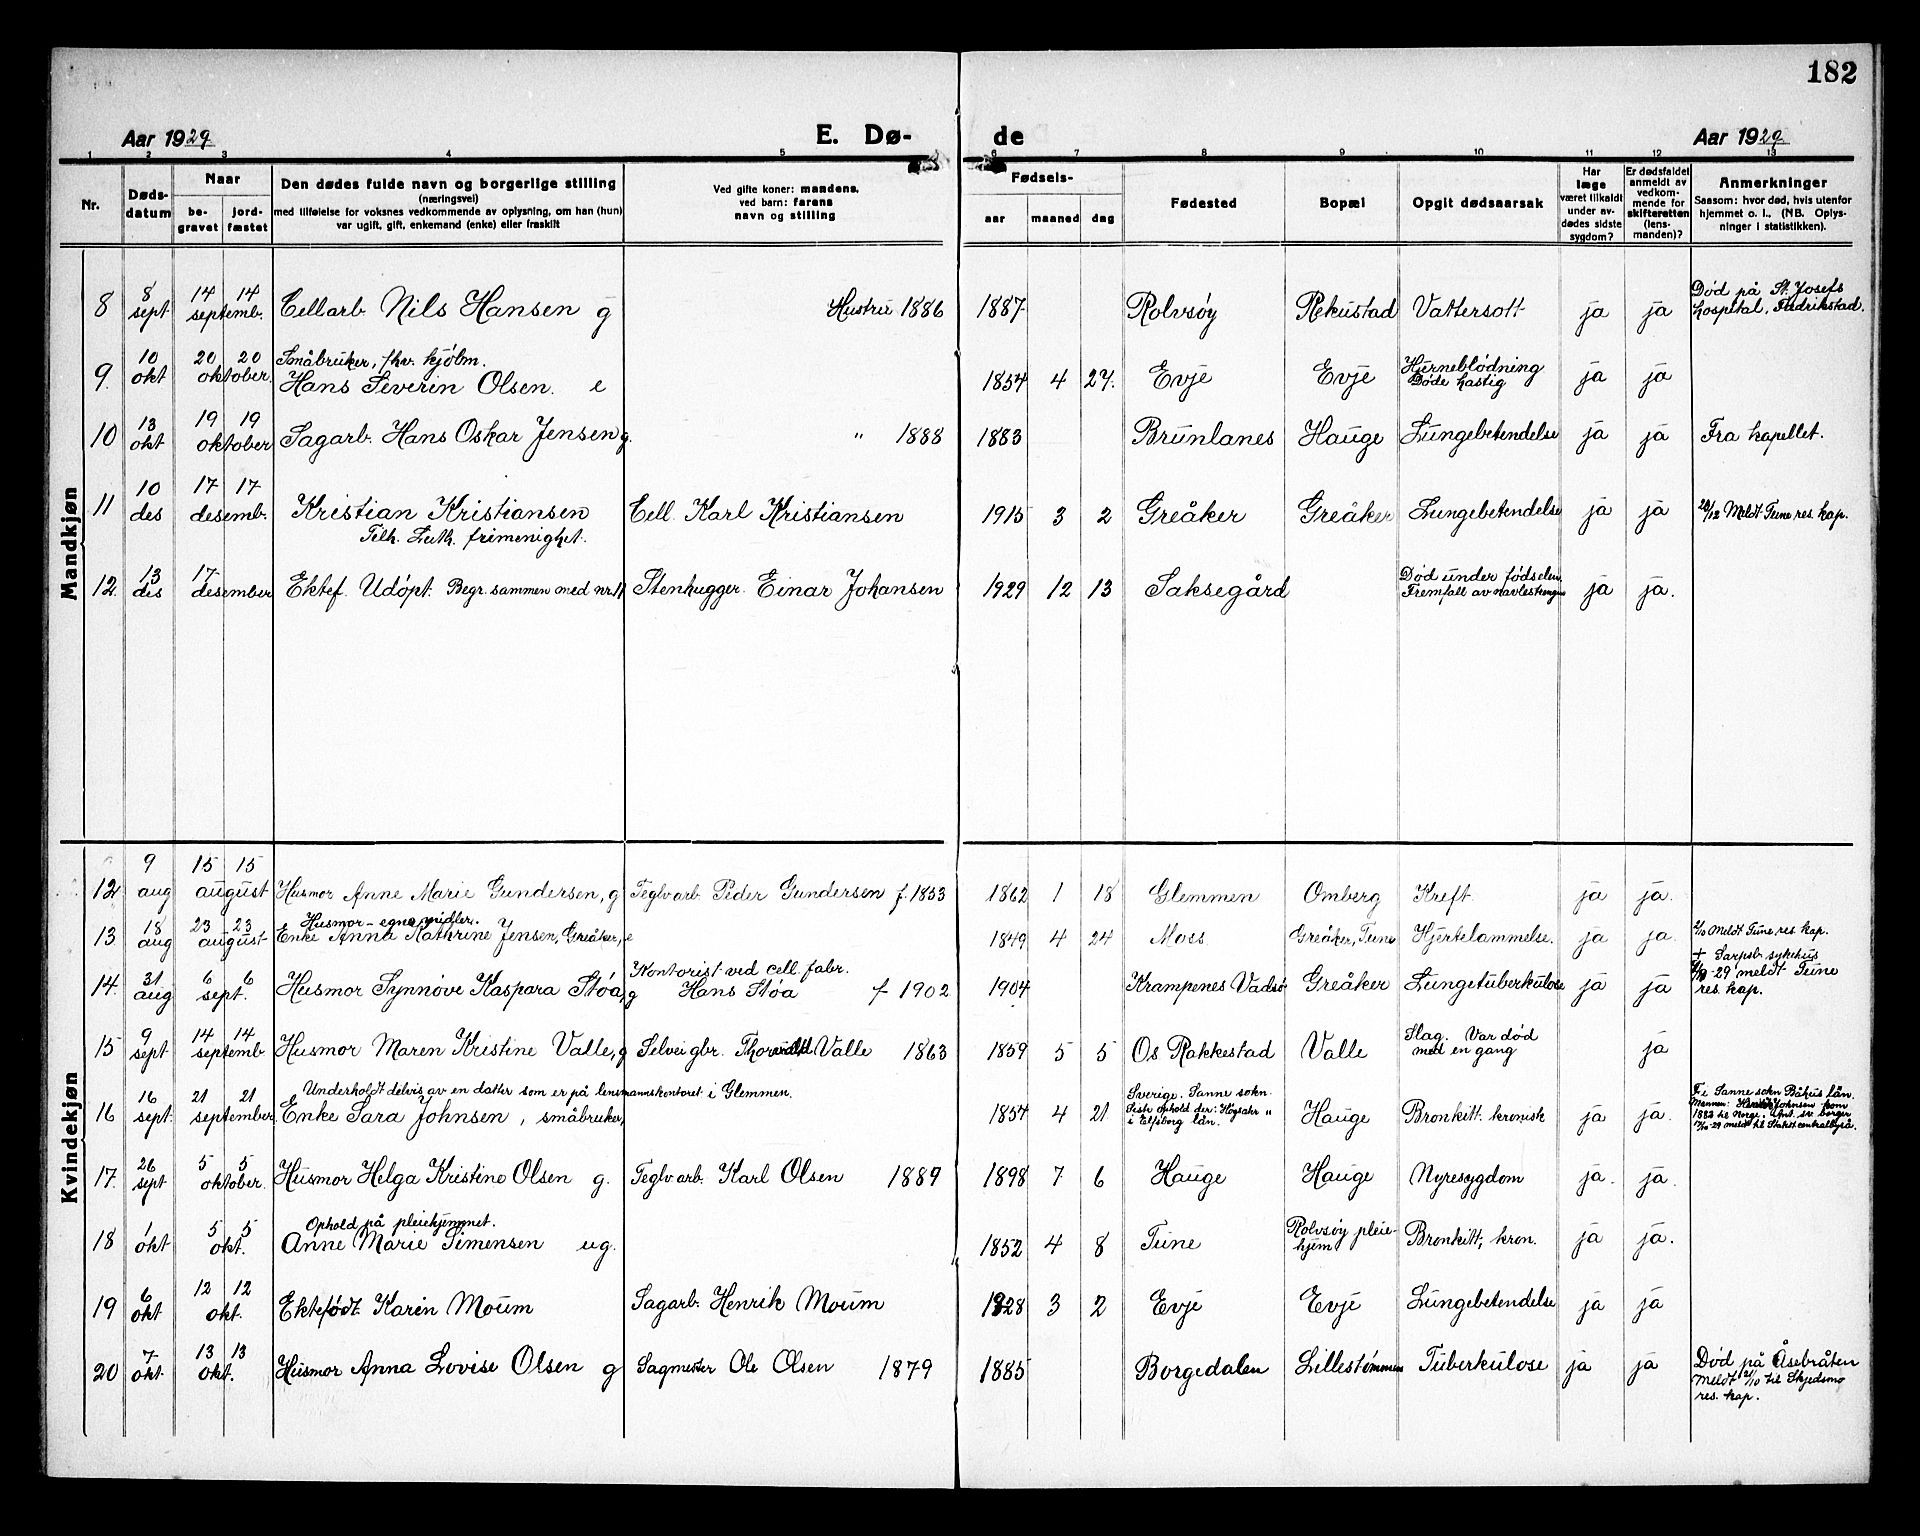 182
Aar 1929. E. Dø- de Aar 1929.
1 2 3 4 5 6 7 8 9 10 11 12 13
Nr. Døds-datum Naar be-gravet jord-fæstet Den dødes fulde navn og borgerlige stilling (næringsvei) med tilføielse for voksnes vedkommende av oplysning, om han (hun) var ugift, gift, enkemand (enke) eller fraskilt Ved gifte koner: mandens. ved barn: farens navn og stilling Fødsels- aar maaned dag Fødested Bopæl Opgit dødsaarsak Har læge været tilkaldt under av-dødes sidste sygdom? Er dødsfaldet anmeldt av vedkom-mende for skifteretten (lens-manden)? Anmerkninger Saasom: hvor død, hvis utenfor hjemmet o. l., (NB. Oplys-ninger i statistikken).
Mandkjøn
8 8 sept 14 14 septemb. Cellarb. Nils Hansen g Hustru 1886 1887 Rolvsøy Rekustad Vattersott ja ja Død på St. Josefs hospital, Fredrikstad.
9. 10 okt 20 20 oktober. Småbruker, fhv. kjølm. Hans Severin Olsen. e 1854 4 27. Evje Evje Hjerneblødning Døde hastig ja ja
10 13 okt 19 19 oktober Sagarb. Hans Oskar Jensen g. " 1888 1883 Brunlanes Hauge Lungebetendelse ja ja Fra kapellet.
11 10 des 17 17 desemb. Kristian Kristiansen Tilh. Luth. frimenighet. Cell. Karl Kristiansen 1915 3 2 Greåker Greåker Lungebetendelse ja ja 28/12 Meldt Tune res. kap.
12. 13 des 17 desember Ektef. Udøpt. Begr. sammen med nr. 11 Stenhugger. Einar Johansen 1929 12 13 Saksegård Død under fødselen. Fremfall av navlestrengen ja ja.
Kvindekjøn
12. 9 aug 15 15 august Husmor Anne Marie Gundersen, g Teglv arb. Peder Gundersen f. 1853 1862 1 18 Glemmen Omberg Kreft. ja ja.
13 18 aug 23 23 august Husmor - egne midler. Enke Anna Kathrine Jensen, Greåker, e 1849 4 24 Moss Greåker, Tune Hjertelammelse. ja ja. Meldt Tune res. kap.
14. 31 aug 6 6 sept. Husmor Synnøve Kaspara Støa, g Kontorist ved cell. fabr. Hans Støa f 1902 1904 Krampenes Vadsø Greåker Lungetuberkulose ja ja + Sarpsb. sykehus -29 meldt Tune res. kap.
15 9 sept 14 14 septemb Husmor Maren Kristine Valle, g Selveigbr. Thorvald Valle 1863 1859 5 5 Os Rakkestad Valle Slag. Var død med en gang ja
16 16 sept. 21 21 september. Underholdt delvis av en datter som er på lensmannskontoret i Glemmen. Enke Sara Johnsen, småbruker, 1854 4 21 Sverige. Sanne sokn. Sidste ophold der: Högsäter " i Elfsborg län. Hauge Bronkitt. kronisk ja ja. F. i Sanne sokn Båhus län. Mannen: Johnsen kom 1882 til Norge. Ant. sv. borger -29 meldt til Statist. centralbyrå.
17. 26 sept 5 5 oktober. Husmor Helga Kristine Olsen g. Teglv arb. Karl Olsen 1889 1898 7 6 Hauge Hauge Nyresygdom ja. ja.
18 1 okt 5 5 okt. Ophold på pleiehjemmet. Anne Marie Simensen ug. 1852 4 8 Tune Rolvsøy pleie-hjem Bronkitt, kron. ja ja.
19 6 okt 12 12 okt. Ektefødt Karen Moum Sagarb. Henrik Moum 1928 3 2 Evje Evje Lungebetendelse ja ja
20 7 okt. 13 13 okt. Husmor Anna Lovise Olsen g Sagmester Ole Olsen 1879 1885 Borgedalen Lillestømmen Tuberkulose ja ja Død på Åsebråten Meldt 21/10 til Skjedsmo res. kap.